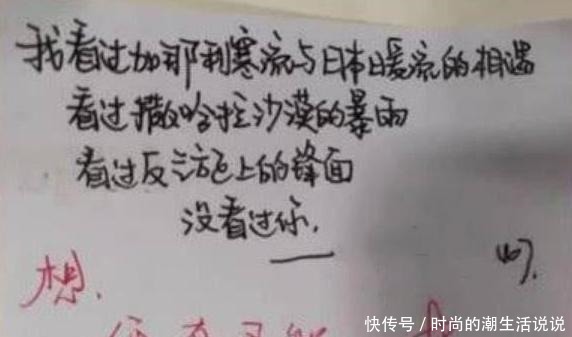 我看过加那利寒流与日本暖流的相遇
看过撒哈拉沙漠的暴雨
看过反气旋上的锋面
没看过你.
想.
快传号/时尚的潮生活说说